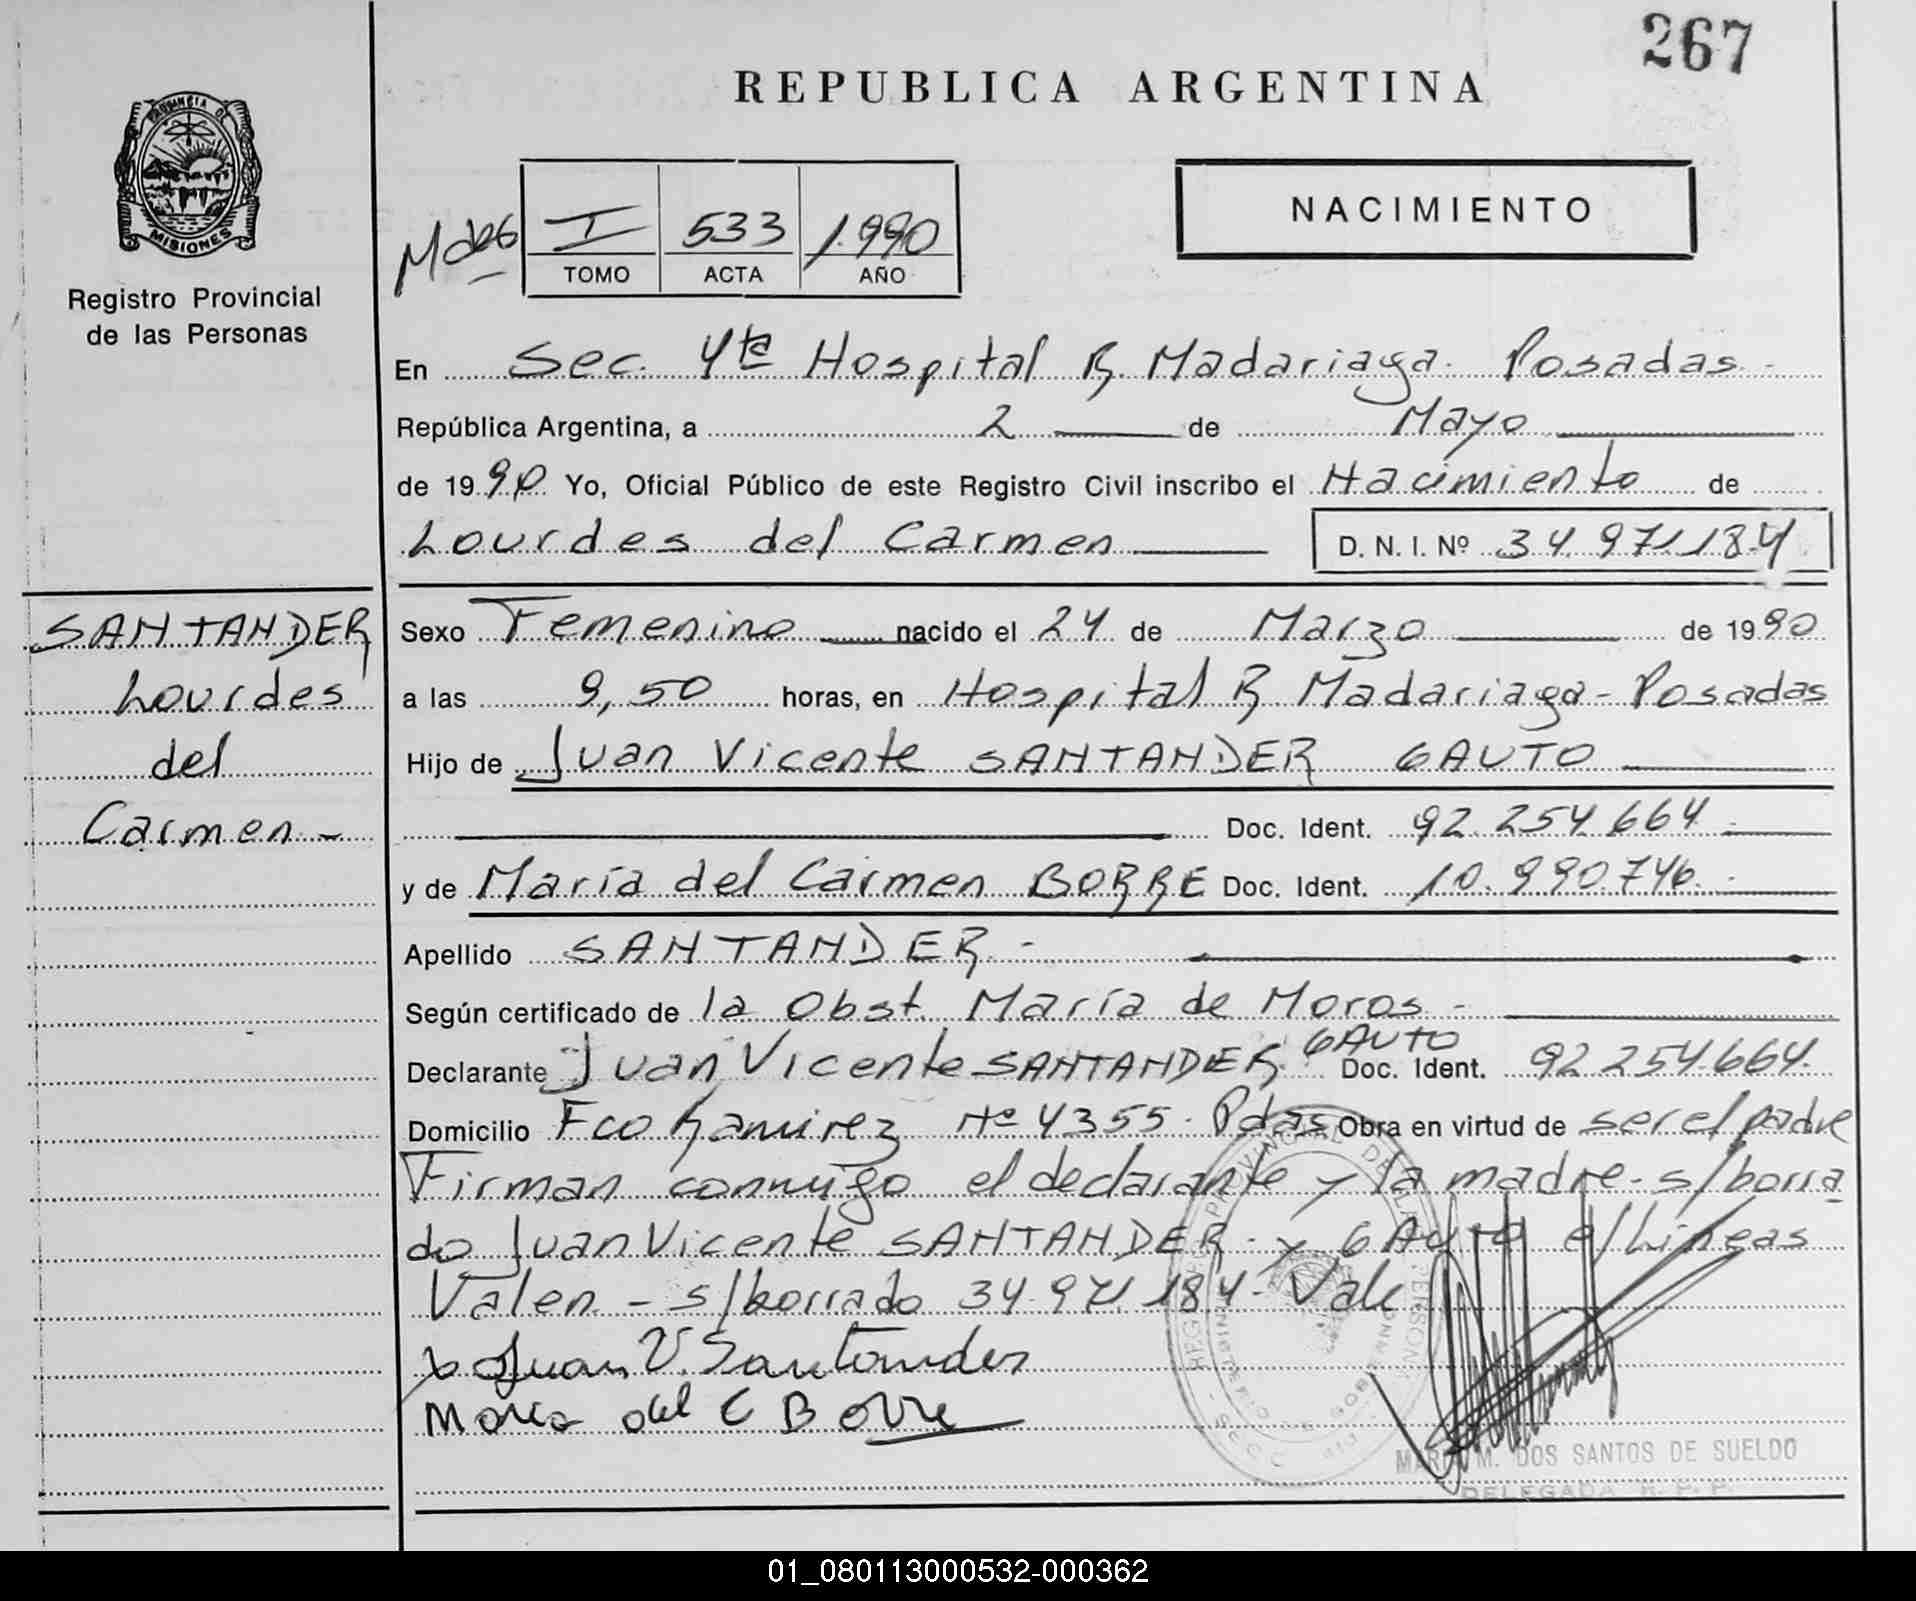 267
REPUBLICA ARGENTINA
PROVINCIA DE
MISIONES
Registro Provincial
de las Personas
NACIMIENTO
I 533 1.990
TOMO ACTA AÑO
En Sec. 4ta Hospital R. Madariaga. Posadas -
República Argentina, a 2 de Mayo
de 1990 Yo, Oficial Público de este Registro Civil inscribo el Nacimiento de
Lourdes del Carmen D. N. I. Nº 34.971.184
SANTANDER
Lourdes
del
Carmen -
Sexo Femenino nacido el 24 de Marzo de 1990
a las 9,50 horas, en Hospital R Madariaga - Posadas
Hijo de Juan Vicente SANTANDER GAUTO
Doc. Ident. 92.254.664
y de María del Carmen BORRE Doc. Ident. 10.990.746.
Apellido SANTANDER -
Según certificado de la Obst. María de Moros -
Declarante Juan Vicente SANTANDER GAUTO Doc. Ident. 92.254.664.
Domicilio Fco Ramirez Nº 4355. Pdas Obra en virtud de ser el padre
Firman conmigo el declarante y la madre - s/borra
do Juan Vicente SANTANDER - y GAUTO e/Lineas
Valen - s/borrado 34.971.184 - Vale
Juan V. Santander
Maria del C Borre
MARIA M. DOS SANTOS DE SUELDO
DELEGADA R. P. P.
01_080113000532-000362